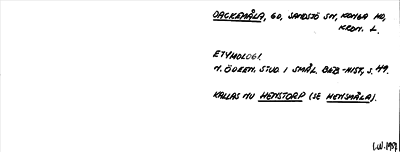 DACKEMÅLA, GD, SANDSJÖ SN, KONGA HD,
KRON. L.
ETYMOLOGI.
N. ÖDEEN, STUD. I SMÅL. BEB-HIST, S. 49.
KALLAS NU HEMSTORP (SE HEMSMÅLA).
I.W. 1957